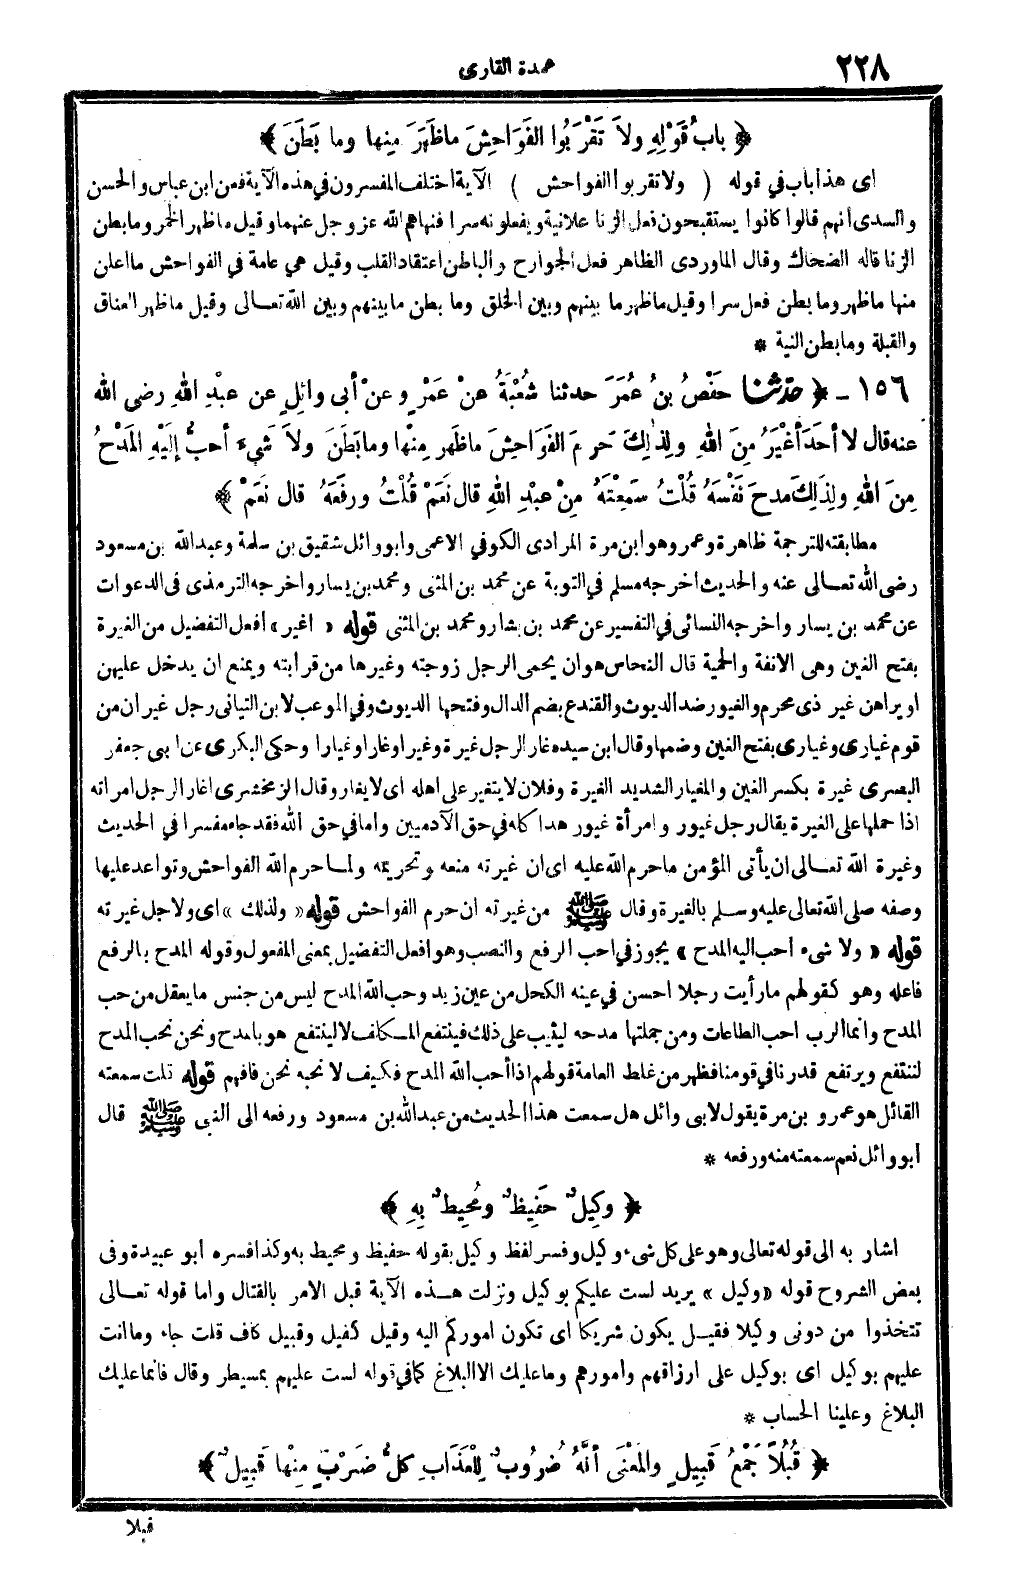 ٢٢٨
عمدة القارى
﴿ بابُ قَوْلِهِ ولاَ تَقْرَبُوا الفَوَاحِشَ ماظَهَرَ مِنها وما بَطَنَ ﴾
اى هذا باب في قوله ( ولا تقربوا الفواحش ) الآية اختلف المفسرون في هذه الآية فعن ابن عباس والحسن
والسدى أنهم قالوا كانوا يستقبحون فعل الزنا علانية ويفعلونه سرا فنهاهم الله عز وجل عنهما وقيل ماظهر الخمر وما بطن
الزنا قاله الضحاك وقال الماوردى الظاهر فعل الجوارح والباطن اعتقاد القلب وقيل هي عامة في الفواحش ما اعلن
منها ماظهر وما بطن فعل سرا وقيل ماظهر ما بينهم وبين الخلق وما بطن ما بينهم وبين الله تعالى وقيل ماظهر العناق
والقبلة وما بطن النية *
١٥٦ - ﴿ حدثنا حَفْصُ بنُ عُمَرَ حدثنا شُعْبَةُ عنْ عَمْرٍ و عنْ أبى وائِلٍ عن عبْدِ اللهِ رضى الله
عنه قال لا أحَدَ أغْيَرُ مِنَ اللهِ ولِذٰلِكَ حَرمَ الفَوَاحِشَ ماظَهر مِنْها وما بَطَنَ ولاَ شَيءَ أحبُّ إلَيْهِ المَدْحُ
مِنَ اللهِ ولِذَلِكَ مدحَ نَفْسَهُ قُلْتُ سَمِعْتَهُ مِنْ عبْدِ اللهِ قال نَعَمْ قُلْتُ ورفَعَهُ قال نَعَمْ ﴾
مطابقته للترجمة ظاهرة وعمرو هو ابن مرة المرادى الكوفي الاعمى وابو وائل شقيق بن سلمة وعبدالله بن مسعود
رضى الله تعالى عنه والحديث اخرجه مسلم في التوبة عن محمد بن المثنى ومحمد بن يسار واخرجه الترمذى فى الدعوات
عن محمد بن يسار واخرجه النسائى في التفسير عن محمد بن بشار ومحمد بن المثنى قوله « اغير » أفعل التفضيل من الغيرة
بفتح الغين وهى الانفة والحمية قال النحاس هو ان يحمى الرجل زوجته وغيرها من قرابته ويمنع ان يدخل عليهن
او يراهن غير ذى محرم والغيور ضد الديوث والقندع بضم الدال وفتحها الديوث وفي الموعب لابن التيانى رجل غيران من
قوم غيارى وغيارى بفتح الغين وضمها وقال ابن سيده غار الرجل غيرة وغيرا وغارا وغيارا وحكى البكرى عن ابى جعفر
البصرى غيرة بكسر الغين والمغيار الشديد الغيرة وفلان لا يتغير على اهله اى لا يغار وقال الزمخشرى اغار الرجل امراته
اذا حملها على الغيرة يقال رجل غيور وامرأة غيور هذا كله في حق الآدميين واما في حق الله فقد جاء مفسرا في الحديث
وغيرة الله تعالى ان يأتى المؤمن ماحرم الله عليه اى ان غيرته منعه وتحريمه ولما حرم الله الفواحش وتواعد عليها
وصفه صلى الله تعالى عليه وسلم بالغيرة وقال ﷺ من غيرته ان حرم الفواحش قوله « ولذلك » اى ولاجل غيرته
قوله « ولا شىء أحب اليه المدح » يجوز في احب الرفع والنصب وهو افعل التفضيل بمعنى المفعول وقوله المدح بالرفع
فاعله وهو كقولهم مارأيت رجلا احسن في عينه الكحل من عين زيد وحب الله المدح ليس من جنس مايعقل من حب
المدح وانما الرب احب الطاعات ومن جملتها مدحه ليثيب على ذلك فينتفع المكلف لا لينتفع هو بالمدح ونحن نحب المدح
لننتفع ويرتفع قدرنا في قومنا فظهر من غلط العامة قولهم اذا أحب الله المدح فكيف لا نحبه نحن فافهم قوله قلت سمعته
القائل هو عمرو بن مرة يقول لابى وائل هل سمعت هذا الحديث من عبدالله بن مسعود ورفعه الى النبى ﷺ قال
ابو وائل نعم سمعته منه ورفعه *
﴿ وكِيلٌ حَفِيظٌ ومُحِيطٌ بِهِ ﴾
اشار به الى قوله تعالى وهو على كل شىء وكيل وفسر لفظ وكيل بقوله حفيظ ومحيط به وكذا فسره أبو عبيدة وفى
بعض الشروح قوله « وكيل » يريد لست عليكم بوكيل ونزلت هذه الآية قبل الامر بالقتال واما قوله تعالى
تتخذوا من دونى وكيلا فقيل يكون شريكا اى تكون اموركم اليه وقيل كفيل وقبيل كاف قلت جاء وما انت
عليهم بوكيل اى بوكيل على ارزاقهم وامورهم وما عليك الا البلاغ كما في قوله لست عليهم بمسيطر وقال فانما عليك
البلاغ وعلينا الحساب *
﴿ قُبُلاً جَمْعُ قَبِيلٍ والمَعْنَى أنَّهُ ضُرُوبٌ لِلْعَذَابِ كلُّ ضَرْبٍ مِنْها قَبِيلٌ ﴾
قبلا